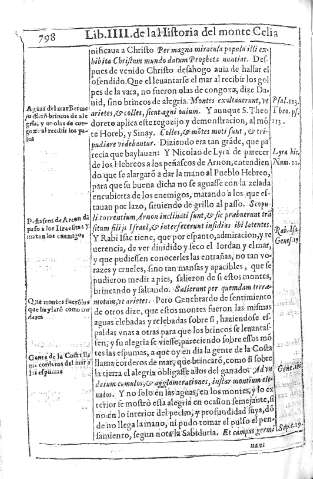 798 Lib. IIII. de la Historia del monte Celia
nificaua a Christo Per magna miracula populo illi ex-
hibita Christum mundo datum Propheta nuntiat. Des-
pues de venido Christo desahogo auia de hallar el
osendido. Que el leuantarse el mar al recibir los gol
pes de la vaca, no fueron olas de congoxa, dize Da
uid, sino brincos de alegria. Montes exultauerunt, ve
arietes, & colles, sicut agni ouium. Y aunque S. Theo
doreto aplica este regozijo y demonstracion, al mõ
te Horeb, y Sinay. Colles, & mõtes moti sunt, & tri-
pudiare videbantur. Diziendo era tan grãde, que pa
recia que baylauan: Y Nicolao de Lyra de parecer
de los Hebreos a los peñascos de Arnon, entendien do
que se alargarõ a dar la mano al Pueblo Hebreo,
para que su buena dicha no se aguasse con la zelada
enemigos, matando a los que es-
tauan por lazo, siruiendo de grillo al passo. Scopu
li torrentium, Arnon inclinati sunt, & sic præbuerunt trã
situm filijs Israel, & interfecerunt insidias ibi latentes.
Y Rabi Isac tiene, que por espanto, admiracion, y re
uerencia, de ver diuidido y seco el Iordan y el mar,
y que pudiessen conocerles las entrañas, no tan vo-
razes y crueles, sino tan mansas y apacibles, que se
pudieron medir a pies, salieron de si estos montes,
brincando y saltando. Salierunt per quemdam terræ-
motum, vt arietes. Pero Genebrardo de sentimiento
de otros dize, que estos montes fueron las mismas
aguas elebadas y relebadas sobre si, haziendose es-
paldas vnas a otras para que los brincos se leuantas-
sen, y su alegria se viesse, pareciendo sobre essos mõ
tes las espumas, a que oy en dia la gente de la Costa
llama corderos de mar, que brincarõ, como si sobre
la tierra el alegria obligasse a los del ganados. Ad vn
darum cumulos, & agglomerationes, instar montium ele-
uatas. Y no solo en las aguas, en los montes, y lo ex
terior se mostró esta alegria en ocasion semejante, si
no en lo interior del pecho, y profundidad suya, dõ
de no llega la mano, ni pudo tomar el pulso el pen-
samiento, segun nota la Sabiduria. Et campus germi
nans
Peñascos de Arnon dã
passo a los Israelitas y
matan los enemigos
Que montes fuerõ los
que baylarõ como cor
deros
Gente de la Costa lla
ma corderos del mar a
las espumas
Psal. 113.
113.
Lyra hic.
Num. 21.
Sap. c. 19.